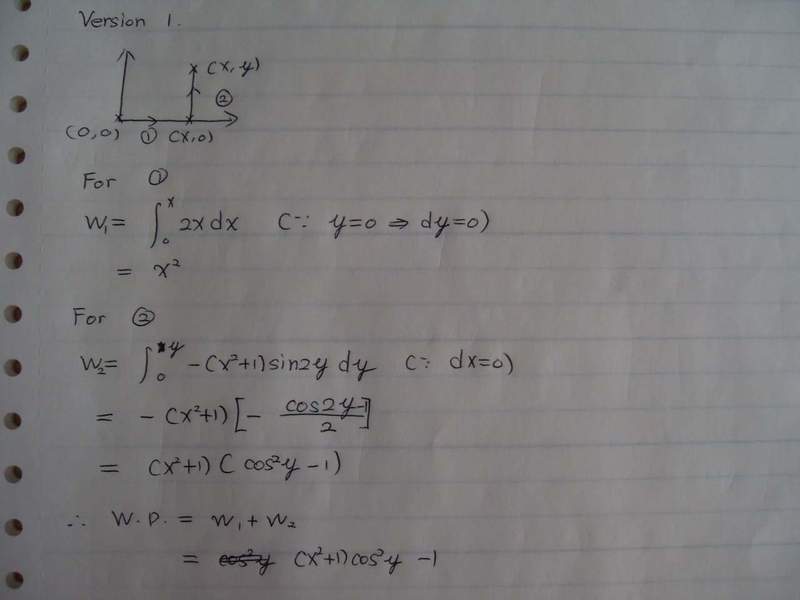 Version 1.
(x, y)
②
(0,0) ① (x,0)
For ①
W₁= ∫₀ˣ 2x dx (∵ y=0 ⇒ dy=0)
= x²
For ②
W₂= ∫₀ʸ -(x²+1)sin2y dy (∵ dx=0)
= -(x²+1)[- (cos2y-1)/2]
= (x²+1)(cos²y-1)
∴ W.D. = W₁+W₂
= (x²+1)cos²y -1